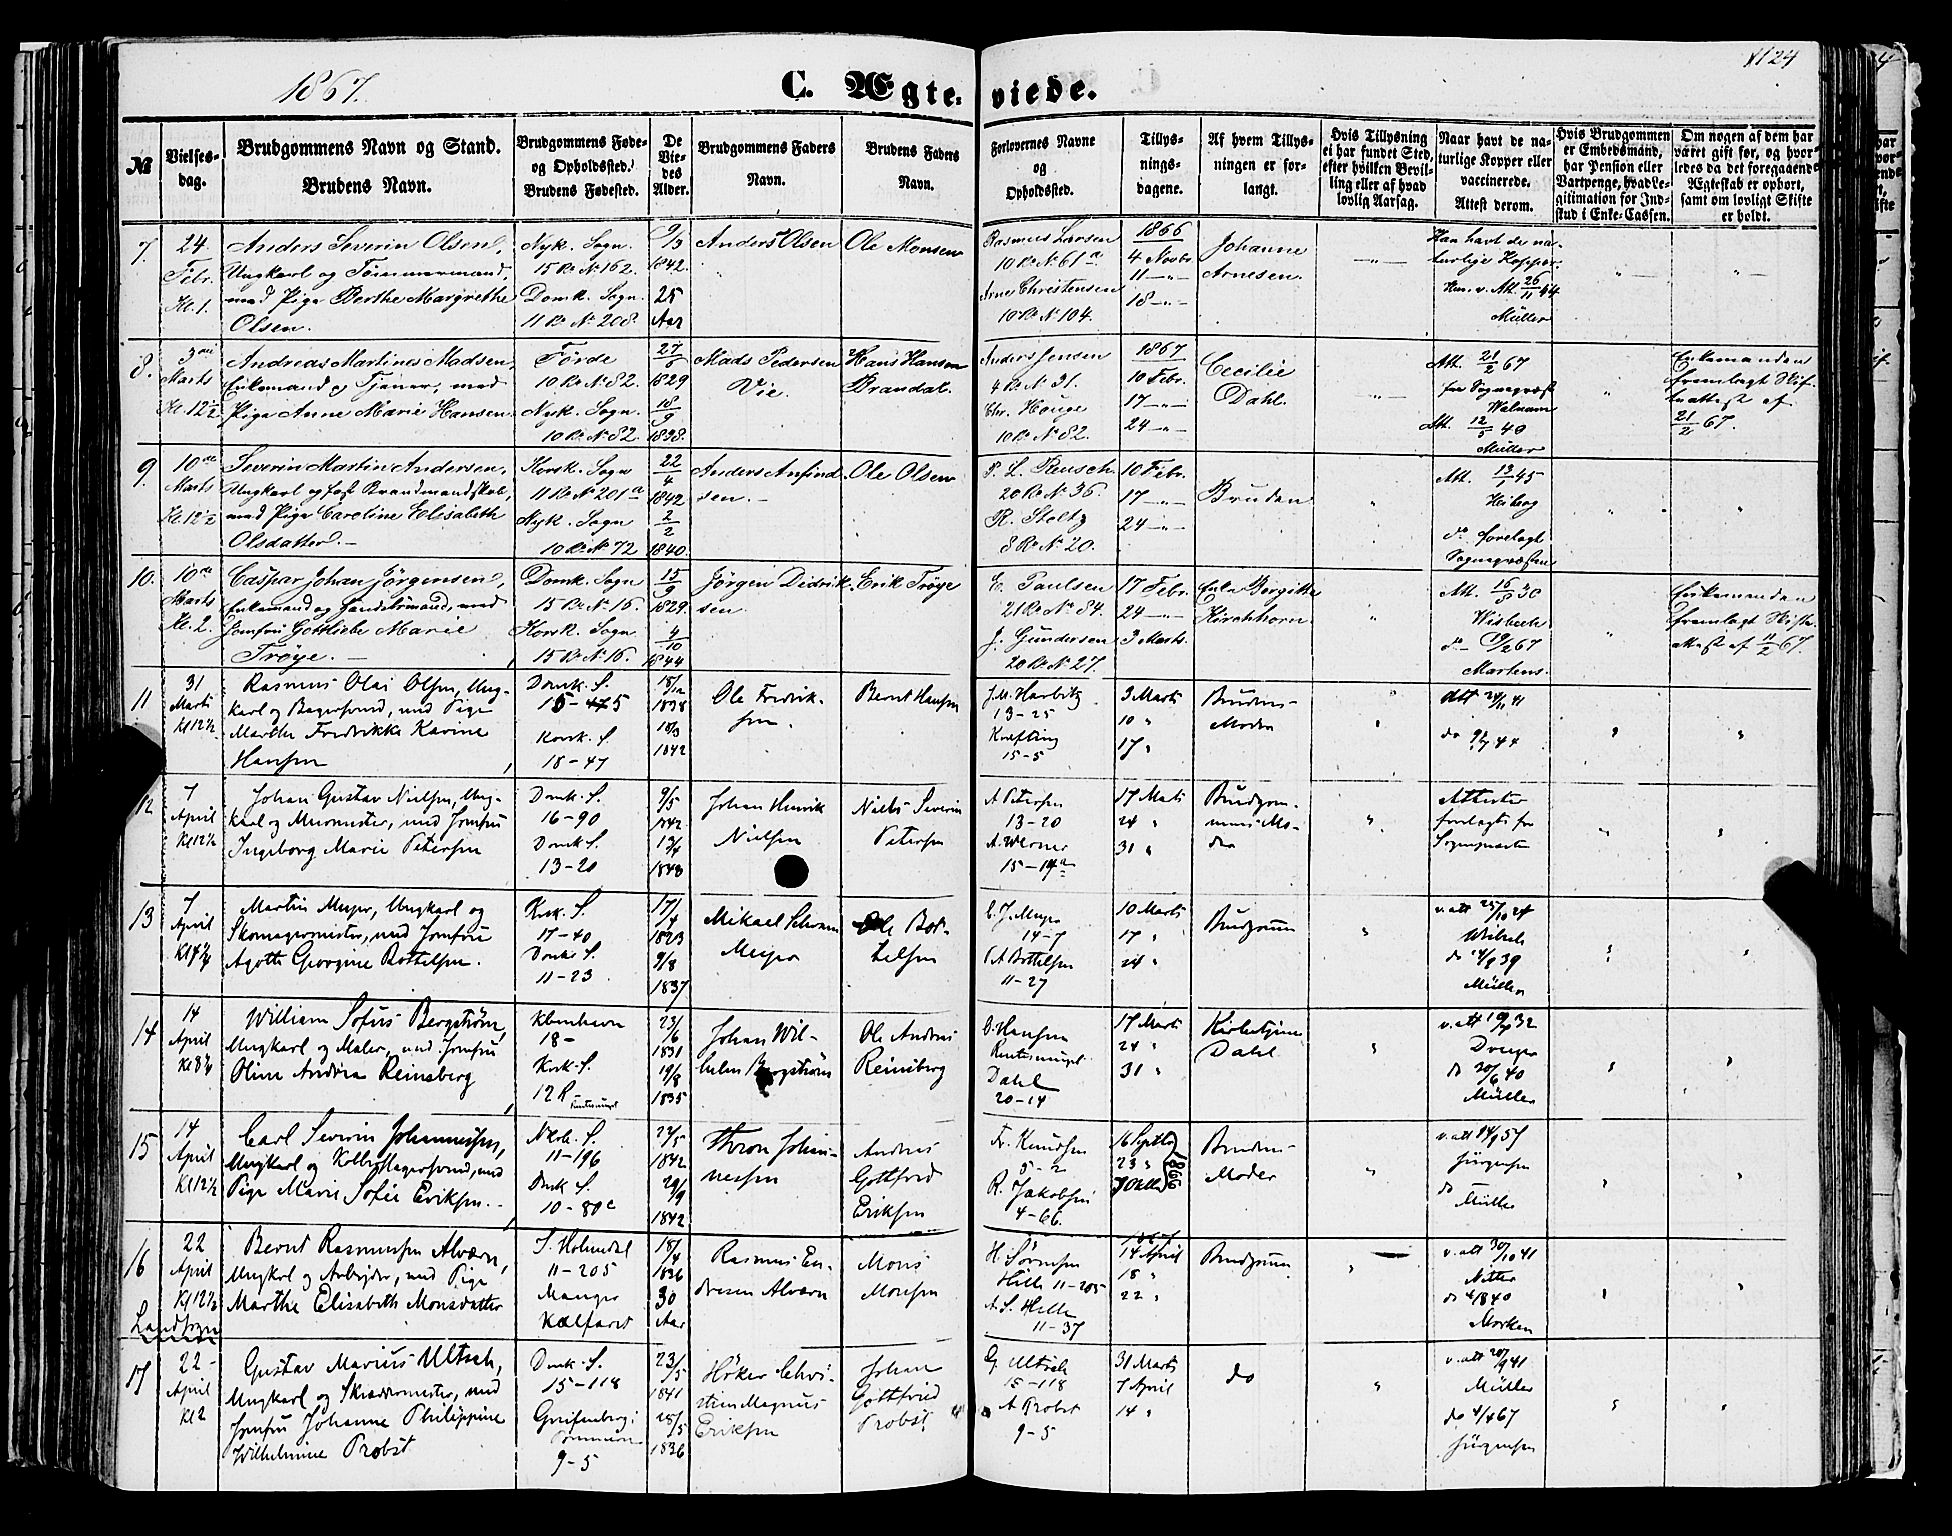 1867.
C. Ægte-
viede.
124
№
Vielses-
dag.
Brudgommens Navn og Stand.
Brudens Navn.
Brudgommens Føde-
og Opholdssted.
Brudens Fødested.
De
Vie-
des
Alder.
Brudgommens Faders
Navn.
Brudens Faders
Navn.
Forlovernes Navne
og
Opholdssted.
Tillys-
nings-
dagene.
Af hvem Tillys-
ningen er for-
langt.
Hvis Tillysning
ei har fundet Sted,
efter hvilken Bevil-
ling eller af hvad
lovlig Aarsag.
Naar havt de na-
turlige Kopper eller
vaccinerede.
Attest derom.
Hvis Brudgommen
er Embedsmand,
har Pension eller
Vartpenge, hvad Le-
gitimation for Ind-
skud i Enke-Cassen.
Om nogen af dem har
været gift før, og hvor-
ledes da det foregaaende
Ægteskab er ophørt,
samt om lovligt Skifte
er holdt.
7.
24.
Febr.
Kl. 1.
Anders Severin Olsen,
Ungkarl og Tømmermand,
med Pige Berthe Margrethe
Olsen.
Nyk. Sogn.
15 R. No 162.
Domk. Sogn.
11 R. No 208.
9/3
1842.
25
Aar
Anders Olsen
Ole Monsen
Rasmus Larsen
10 R. No 61 a
Arne Christensen
10 R. No 104.
1866
4 Novbr.
11 - " -
18 - " -
Johanne
Arnesen.
Han havt de na-
turlige Kopper.
Hun v. Att. 26/11 44
Müller
8.
3die
Marts
Kl. 12½
Andreas Martines Madsen,
Enkemand og Tjener, med
Pige Anne Marie Hansen.
Førde
10 R. No 82.
Nyk. Sogn.
10 R. No 82.
27/6
1829
18/9
1838.
Mads Pedersen
Vie.
Hans Hansen
Brandal.
Anders Jensen
4 R. No 31.
Chr. Houge
10 R. No 82.
1867
10 Febr.
17 - " -
24 - " -
Cecilie
Dahl.
Att. 21/2 67
fra Sognepræst
Walnum
Att. 12/5 40
Müller
Enkemanden
fremlagt Skif-
teattest af
21/2 67.
9.
10de
Marts
Kl. 12½
Severin Martin Andersen,
Ungkarl og fast Brandmandskab,
med Pige Caroline Elisabeth
Olsdatter. -
Korsk. Sogn
11 R. No 201 a
Nyk. Sogn
10 R. No 72
22/4
1842
2/2
1840.
Anders Anfind-
sen. -
Ole Olsen
P. L. Reusch
20 R. No 36.
R. Stoltz
8 R. No 20.
10 Febr.
17 - " -
24 - " -
Bruden
Att. 13/1 45
Heiberg
do forelagt
Sognepræsten
10.
10de
Marts
Kl. 2.
Caspar Johan Jørgensen,
Enkemand og Handelsmand, med
Jomfru Gottliebe Marie
Trøye. -
Domk. Sogn
15 R. No 16.
Korsk. Sogn.
15 R. No 16.
15/9
1829.
4/10
1844
Jørgen Didrik-
sen.
Erik Trøye
E. Paulsen
21 R. No 84.
J. Gundersen
20 R. No 27.
17 Febr.
24 - " -
3 Marts.
Enke Birgitte
Kirchhorn
Att. 16/8 30
Wisbech
do 19/2 67
Martens.
Enkemanden
fremlagt Skifte-
attest af 11/2 67.
11
31
Marts
Kl 12½
Rasmus Olai Olsen, Ung-
karl og Bagersvend, med Pige
Marthe Fredrikke Karine
Hansen
Domk. S.
Korsk. S.
18-47
18/12
1838
18/3
1842
Ole Fredrik-
sen.
Bernt Hansen
J. M. Harbitz
13-25
15-5
3 Marts
10 "
17 "
Brudens
Moder
Att 24/11 41
12
7
April
Kl 12½
Johan Gustav Nielsen, Ung-
karl og Murmester, med Jomfru
Ingeborg Marie Petersen
Domk. S.
16-90
Domk S.
13-20
9/5
1842
1843
Johan Henrik
Nielsen
Niels Severin
Petersen
A Petersen
13-20
A. Werner
15-14a
17 Marts
24 "
31 "
Brudgom-
mens Mo-
der
Attester
forelagte for
Sognepræsten
13
7
April
Martin Meyer, Ungkarl og
Skomagermester, med Jomfru
Agothe Georgine Bottelsen.
Krsk. S.
17-40
Domk S.
11-23
17/4
1823
9/8
1837
Mikael
Meyer
Ole Bot-
telsen
C. J. Meyer
14-7
Bottelsen
11-27
10 Marts
17 "
24 "
Brudgommen
v. att 25/10 24
Wisbech
Müller
14
14
April
William Sofus Bergstrøm,
Ungkarl og Maler, med Jomfru
Oline Andrea Reinsberg
Kbenhavn
18-
Korsk. S.
12 R
23/6
1831
19/8
1835
Johan Wil-
helm Bergstrøm
Ole Andreas
Reinsberg
O. Hansen
Dahl
20-14
17 Marts
24 "
31 "
Kirketjener
Dahl
Dreyer
do 20/6 40
Müller
15
14
April
Kl 12½
Carl Severin Johannessen,
Ungkarl og Kobberslagersvend, med
Pige Marie Sofie Eriksen.
Nkrk. S.
11-196
Domk S.
10-80c
1842
29/9
1842
Johan-
nessen
Andreas
Gottfred
Eriksen
Fr. Knudsen
5-2
R. Jakobsen
4-66.
16 Septbr
23 "
7 Oktbr
1866
Brudens
Moder
Jürgensen
do
Müller
16
22
April
Kl 12½
Landsogn
Bernt Rasmussen Alværn,
Ungkarl og Arbeider, med Pige
Marthe Elisabeth Monsdatter
11-205
Manger
Kalfaret
18/4
1836
30
Aar
Rasmus En-
dresen Alværn
Mons
Monsen
H. Sørensen
Hille 11-205
A. S. Helle
11-37
1867
14 April
18 "
22 "
Brudgommen
v. att 30/10 41
Nitter
Morken
17
22-
April
Kl 2
Gustav Marius Ultsch,
Ungkarl og Skreddermester, med
Jomfru Johanne Philippine
Wilhelmine Probst
Domk. S.
15-118
Greifenberg i
Pommern
9-5
23/5
1841
28/5
1836
Høker Chri-
stian Magnus
Eriksen
Johan
Gottfried
Probst
G. Ultsch
15-118
A Probst
9-5
31 Marts
7 April
14 "
do
Müller
do 4/4 67
Jürgensen